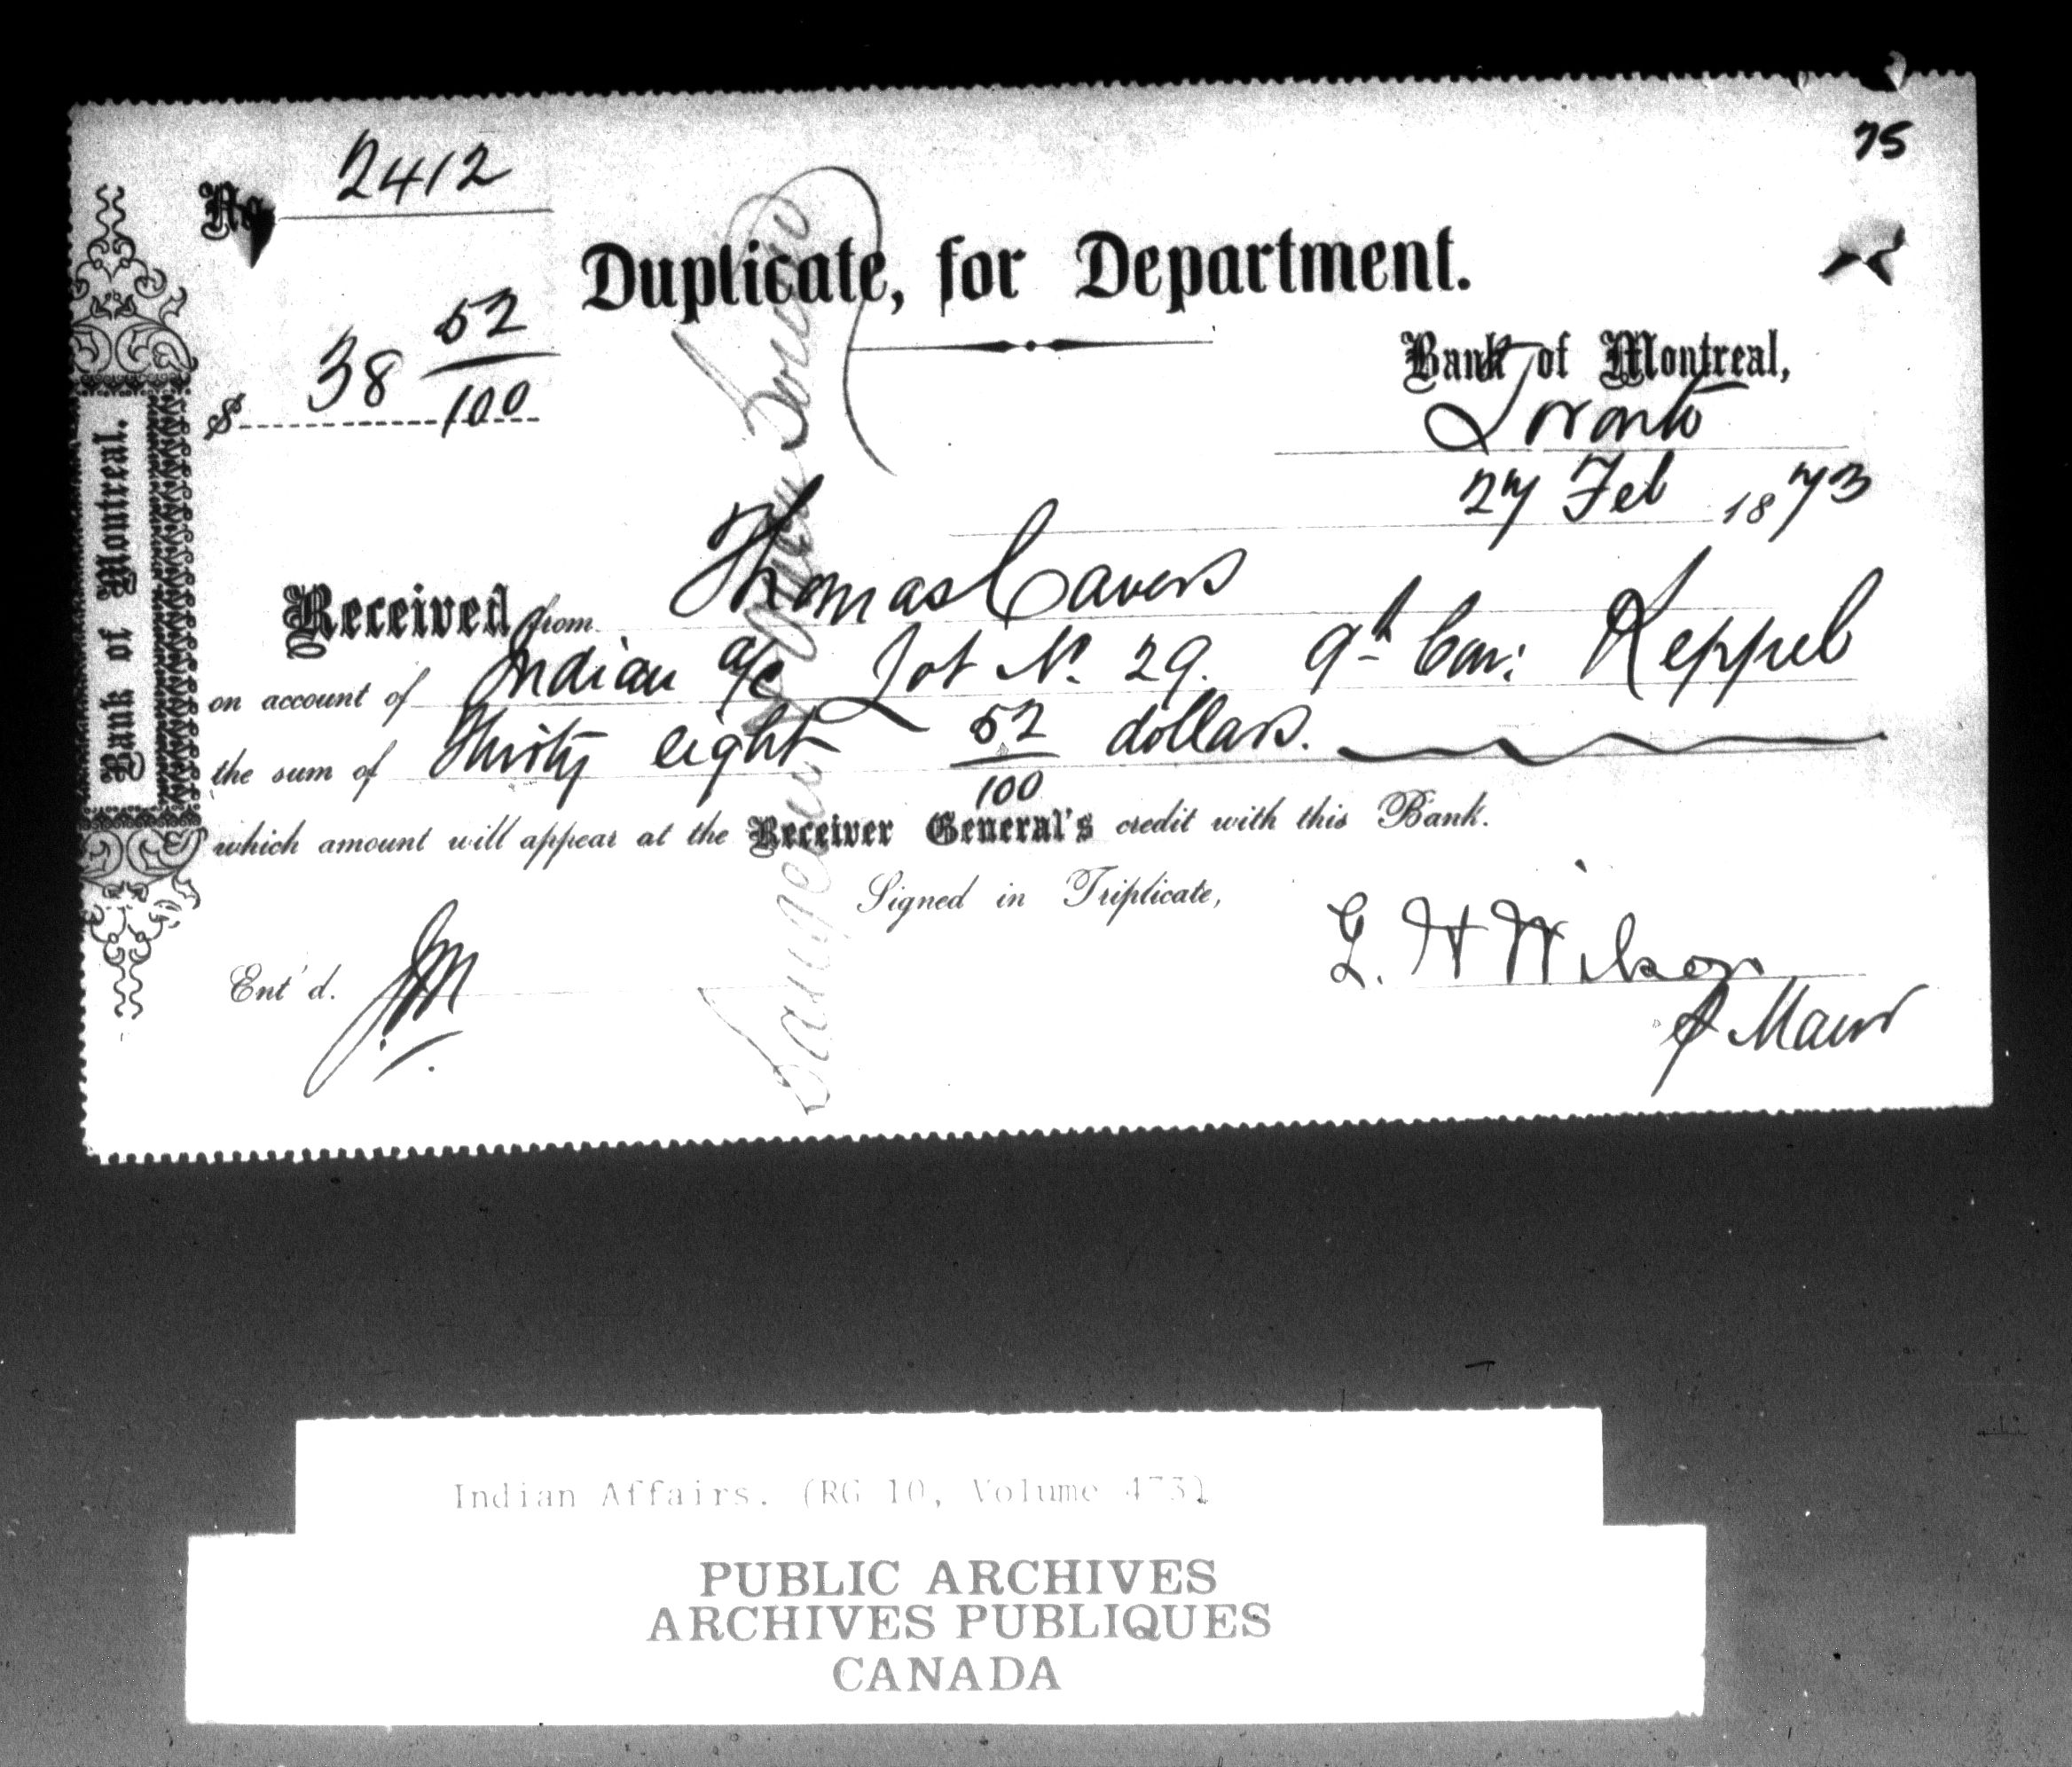 75
No 2412
Duplicate, for Department.
$ 38 52/100
Bank of Montreal,
Toronto
27 Feb 1873
Received from Thomas Cavers
on account of Indian a/c Lot No. 29. 9th Con: Keppel
the sum of Thirty eight 52/100 dollars.
which amount will appear at the Receiver General's credit with this Bank.
Signed in Triplicate,
Ent'd. JM
L. H Wilson
p Manr
Bank of Montreal.
Indian Affairs. (RG 10, Volume 473)
PUBLIC ARCHIVES
ARCHIVES PUBLIQUES
CANADA